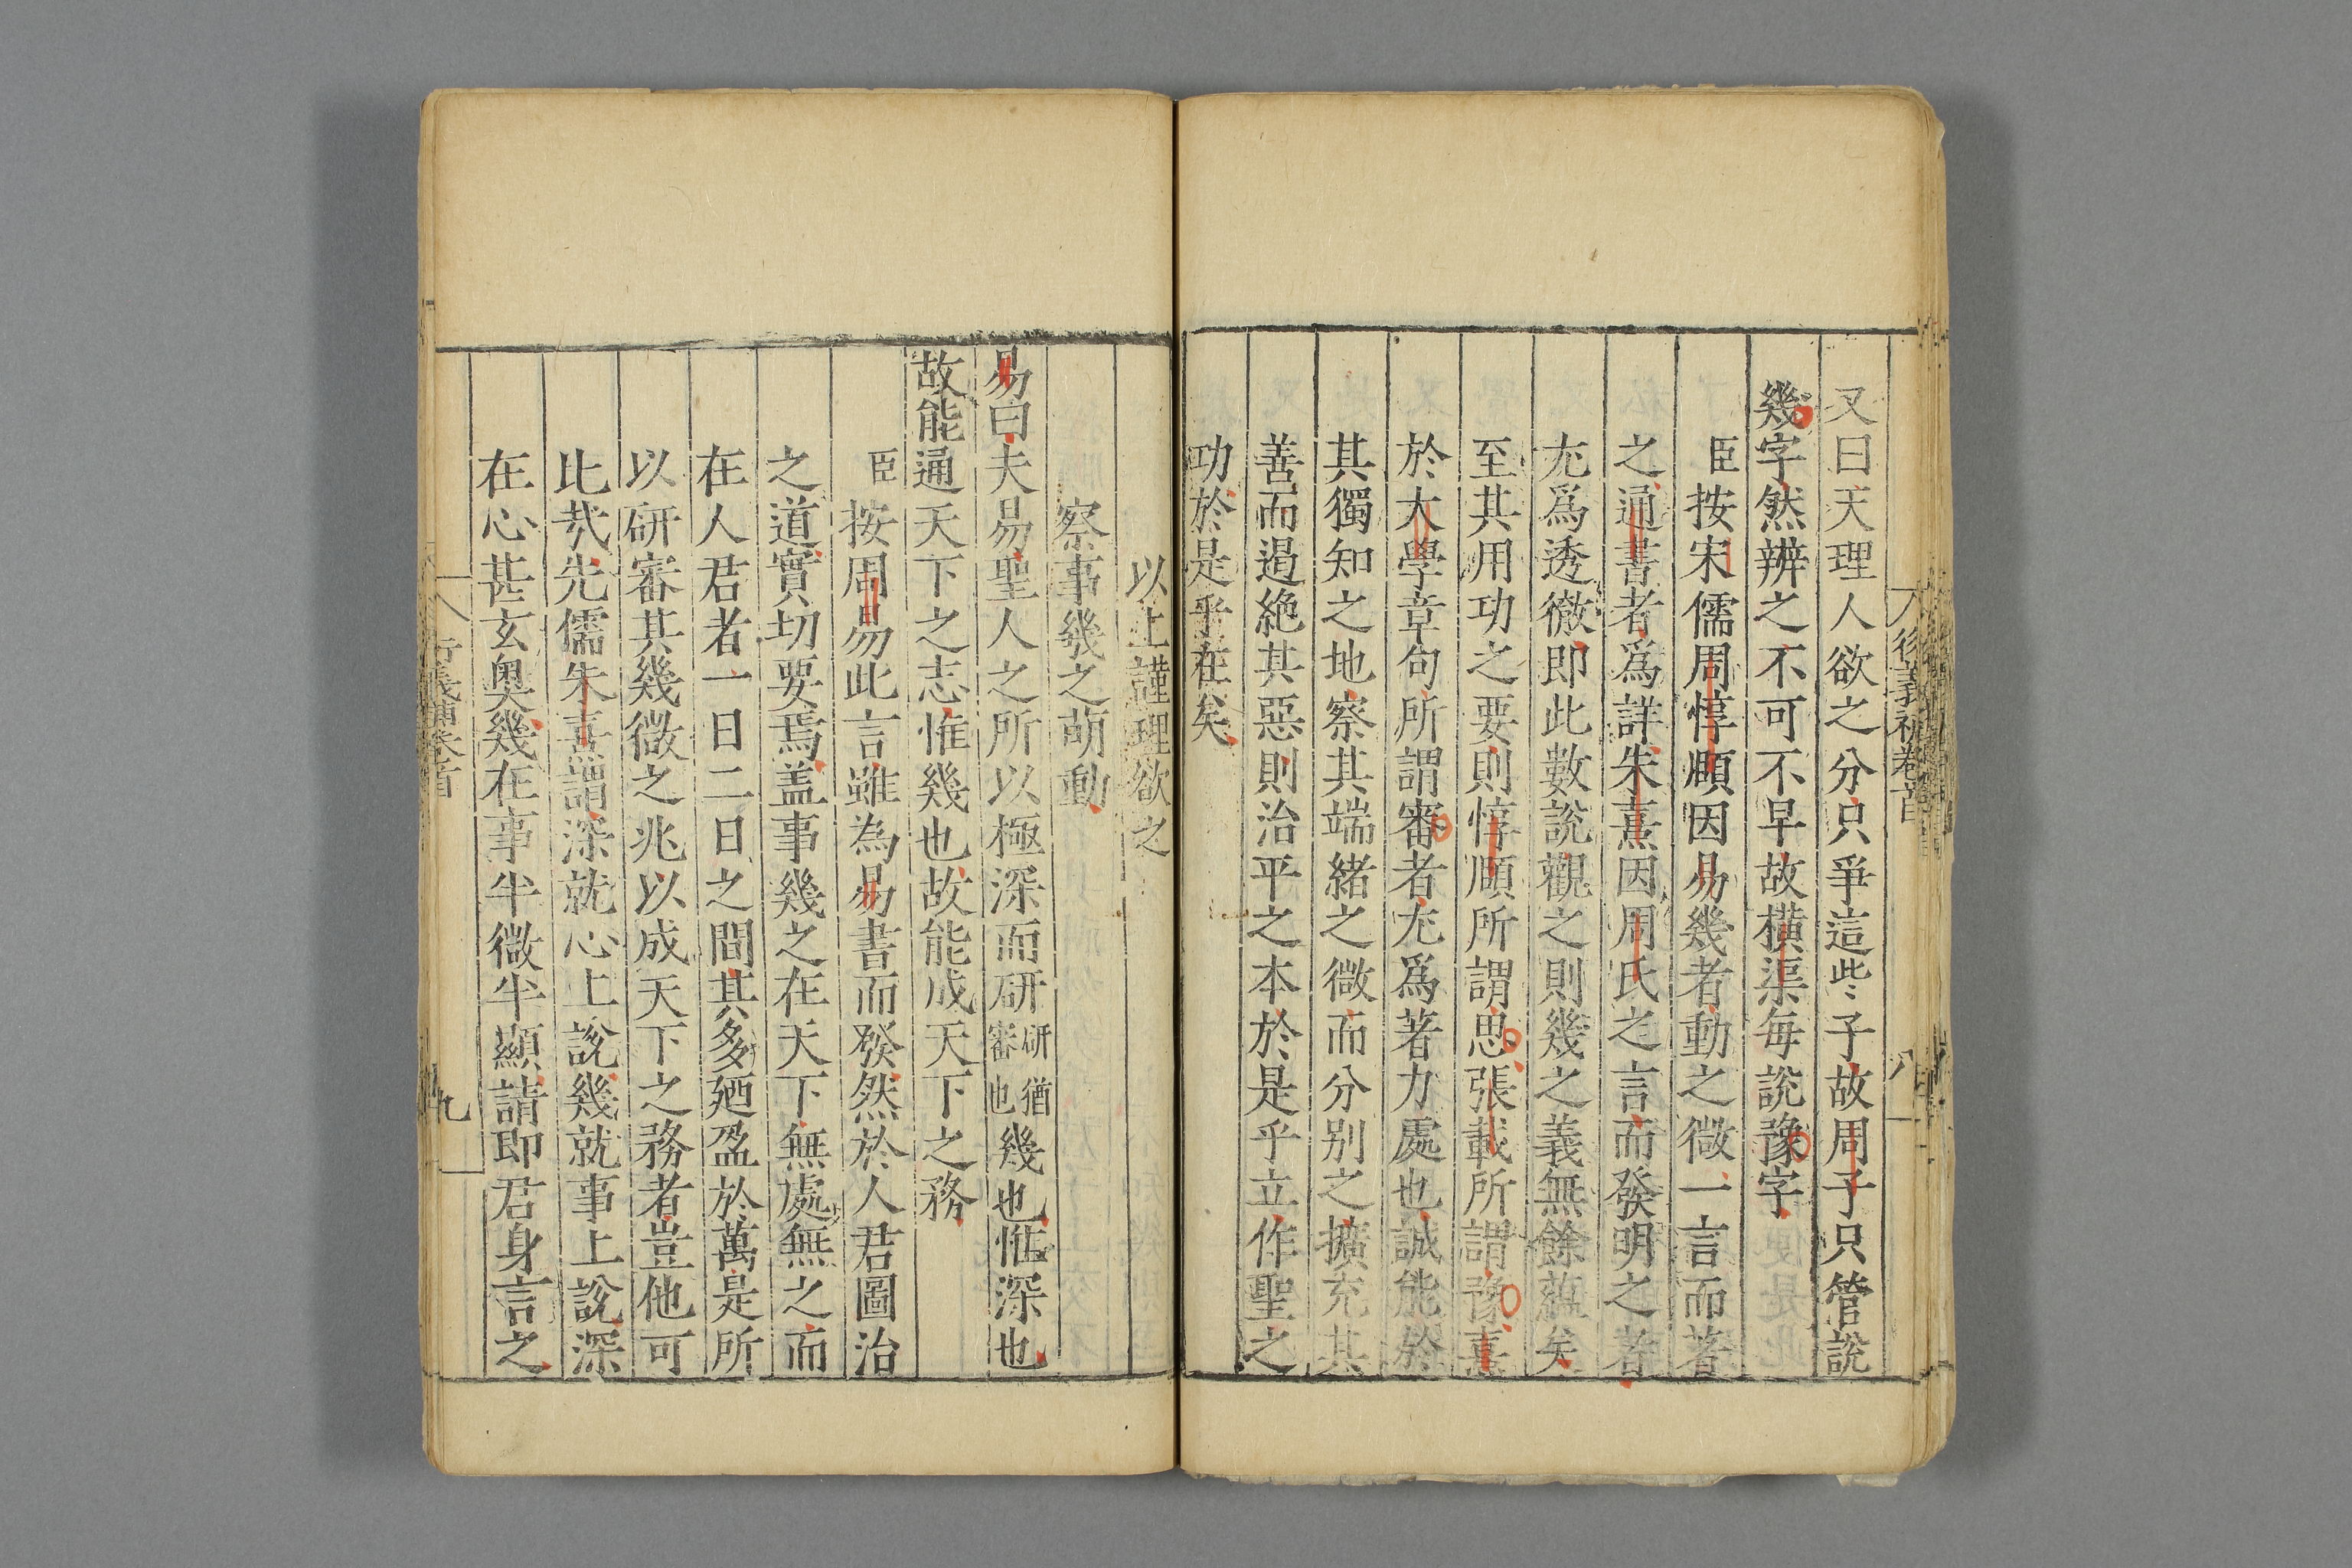 又曰天理人欲之分只爭這些子故周子只管說
幾字然辨之不可不早故橫渠每說豫字
臣按宋儒周惇頤因易幾者動之微一言而著
之通書者爲詳朱熹因周氏之言而發明之者
尤爲透徹即此數說觀之則幾之義無餘蘊矣
至其用功之要則惇頤所謂思張載所謂豫熹
於大學章句所謂審者尤爲著力處也誠能於
其獨知之地察其端緒之微而分別之擴充其
善而遏絶其惡則治平之本於是乎立作聖之
功於是乎在矣
以上謹理欲之
察事幾之萌動
易曰夫易聖人之所以極深而研研猶審也幾也惟深也
故能通天下之志惟幾也故能成天下之務
臣按周易此言雖為易書而發然於人君圖治
之道實切要焉盖事幾之在天下無處無之而
在人君者一日二日之間其多廼盈於萬是所
以研審其幾微之兆以成天下之務者豈他可
比哉先儒朱熹謂深就心上說幾就事上說深
在心甚玄奥幾在事半微半顯請即君身言之
九